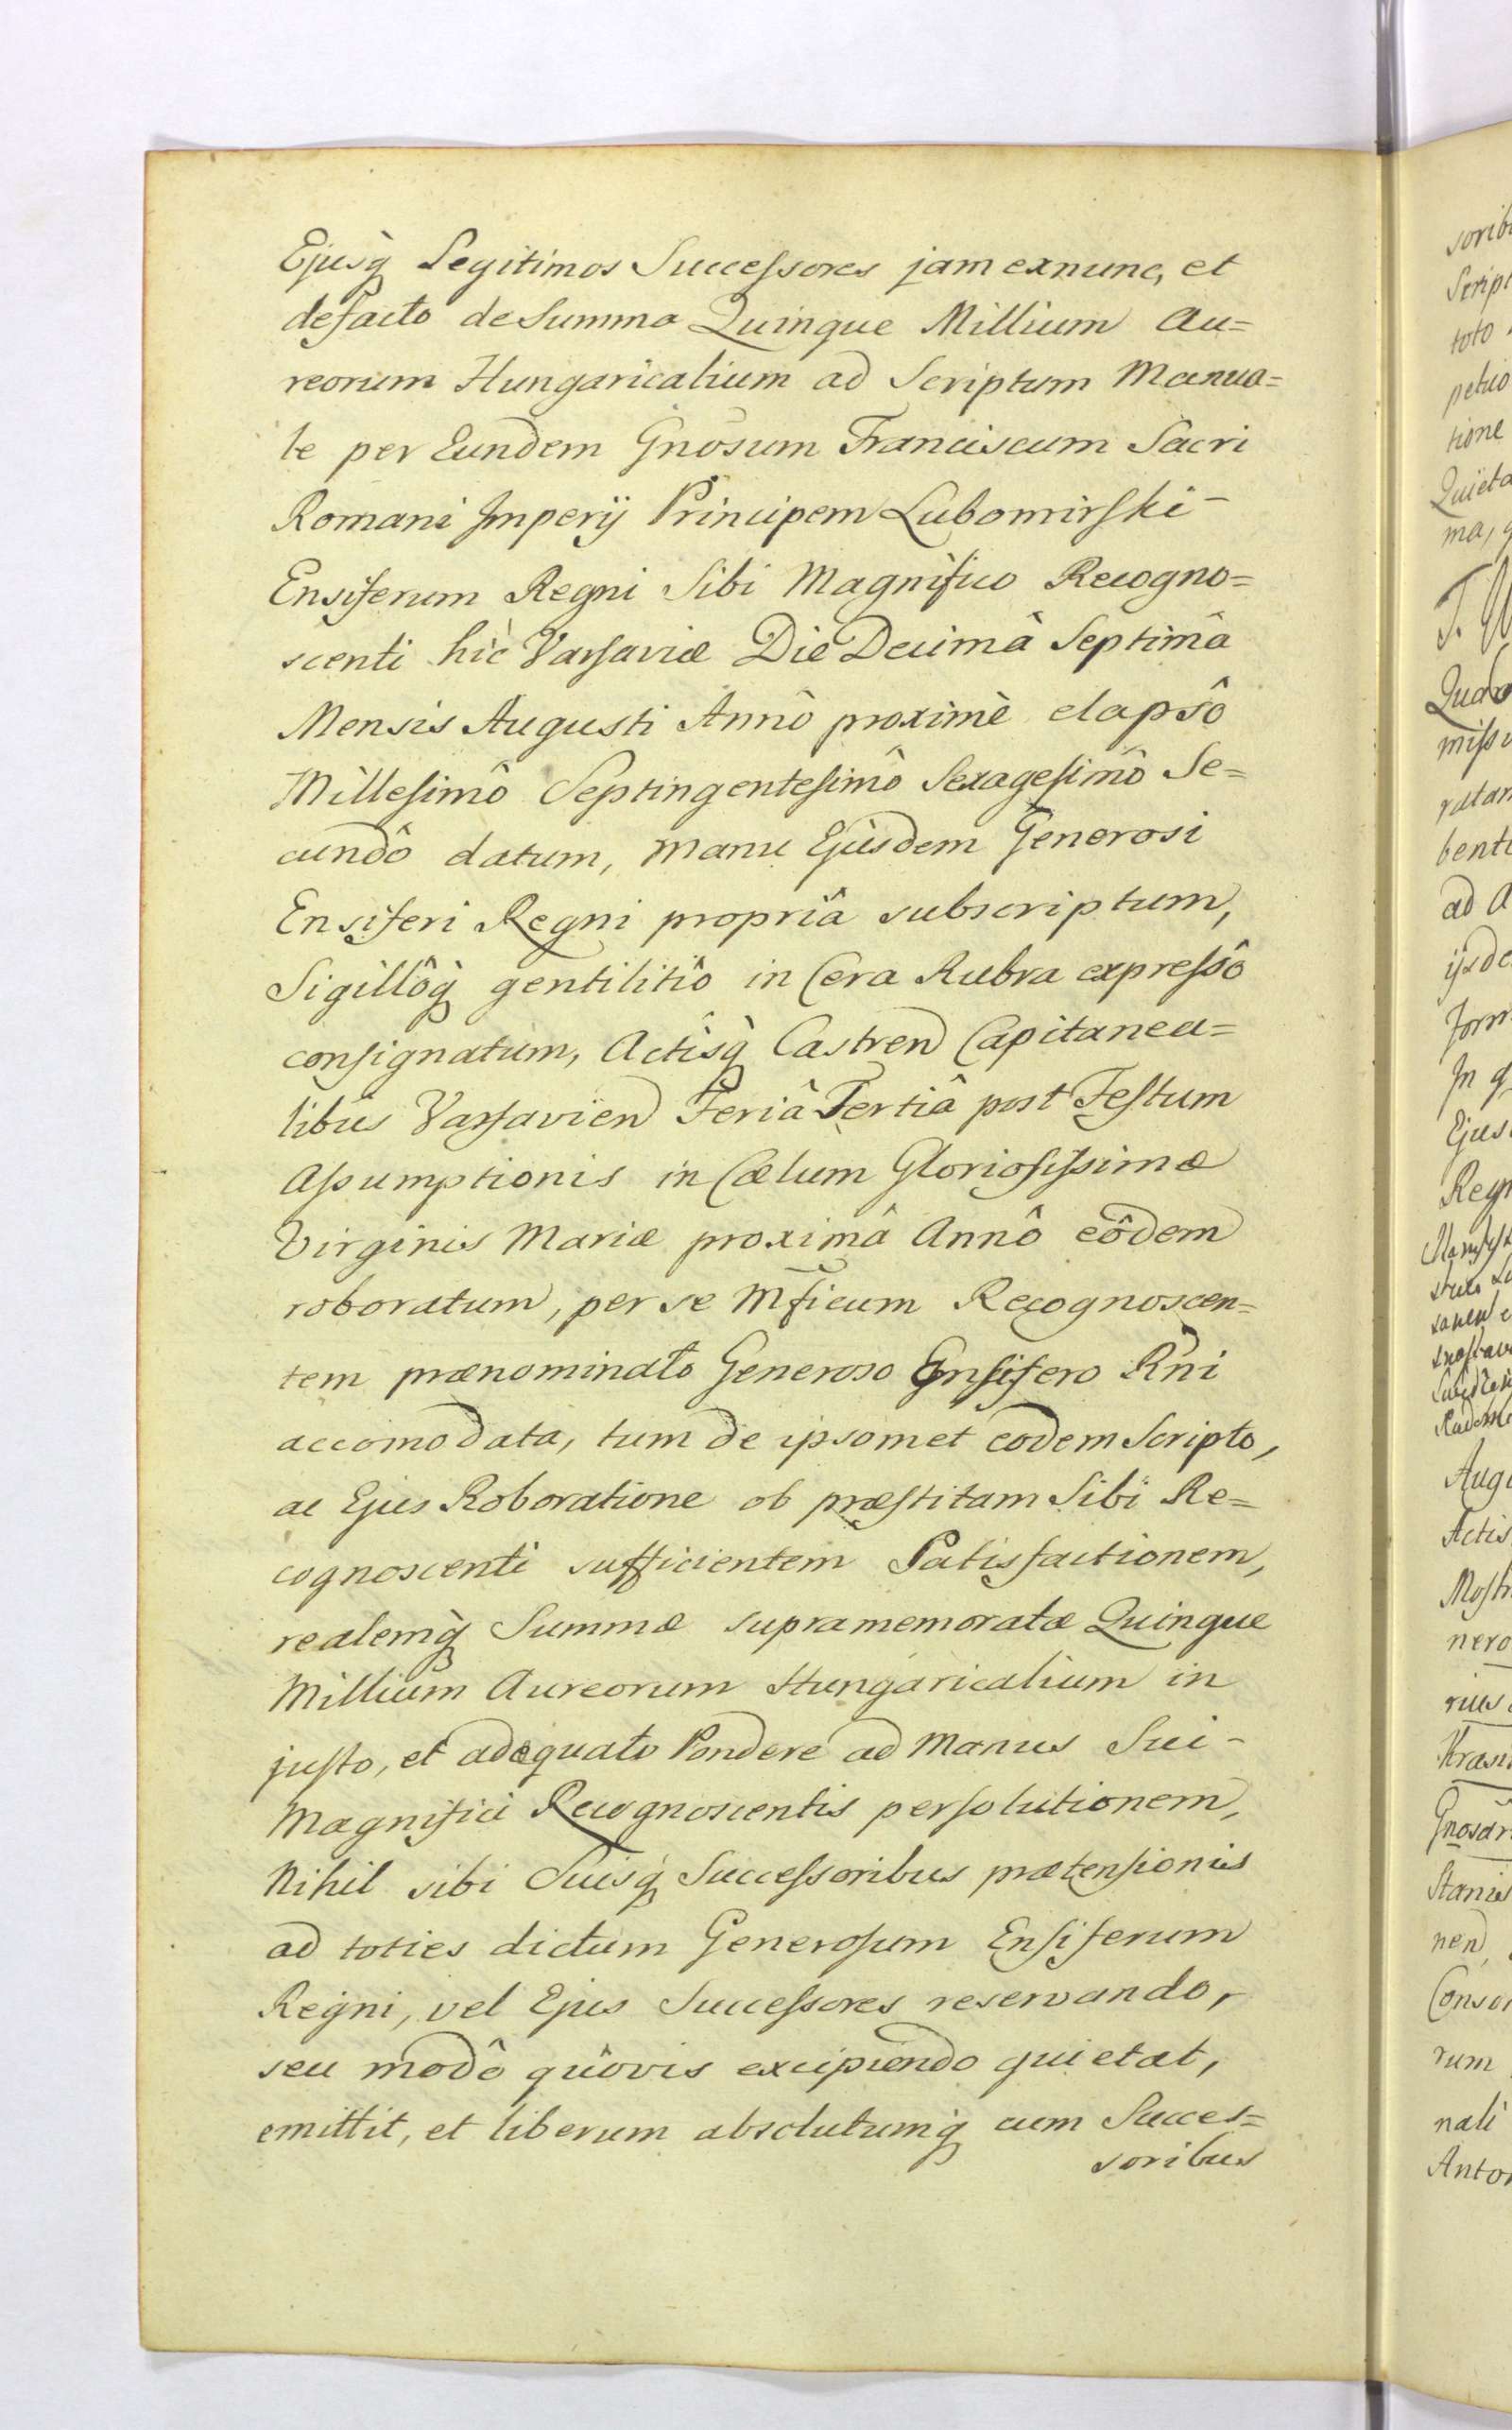 Ejusq̀ Legitimos Successores jam exnunc, et
defacto de Summa Quinque Millium Au=
reorum Hungaricalium ad Scriptum Manua=
le per Eundem Gnosum Franciscum Sacri
Romani Imperij Principem Lubomirski -
Ensiferum Regni Sibi Magnifico Recogno=
scenti hìc Varsaviæ Die Decimâ Septimâ
Mensis Augusti Annô proximè elapsô
Millesimô Septingentesimô Sexagesimô Se=
cundô datum, manu Ejusdem Generosi
Ensiferi Regni propriâ subscriptum,
Sigillôq̀ gentilitiô in Cera Rubra expressô
consignatum, Actisq̀ Castren Capitanea=
libus Varsavien Feriâ Tertiâ post Festum
Assumptionis in Cælum Gloriosissimæ
Virginis Mariæ proximâ Annô eôdem
roboratum, per se Mficum Recognoscen=
tem prænominato Generoso Ensifero Rni
accomodata, tum de ipsomet eodem Scripto,
ac Ejus Roboratione ob præstitam Sibi Re=
cognoscenti sufficientem Satisfactionem,
realemq̀ Summæ supramemoratæ Quinque
Millium Aureorum Hungaricalium in
justo, et adæquato Pondere ad Manus Sui -
Magnifici Recognoscentis persolutionem,
Nihil sibi Suisq̀ Successoribus prætensionis
ad toties dictum Generosum Ensiferum
Regni, vel Ejus Successores reservando,
seu modô quôvis excipiendo quietat,
emittit, et liberum absolutumq̀ cum Succes=
soribus